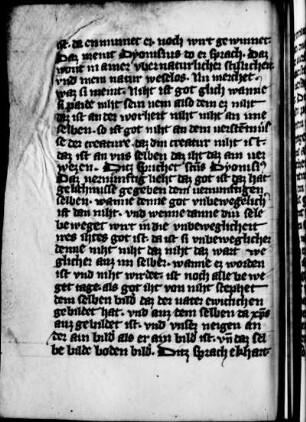 ist. da en nimet er noch wirt gewinnet.
Daz menit Dyonisius do er sprach. Daz
wont in ainer vbernaturlicher
vnd mein natur weselos. Nu merchet
waz si menit. Niht ist got glich wanne
si paide niht sein vein also dem er niht
daz ist an der worheit niht niht an ime
selben. so ist got niht an dem verstentnüs
se der creature. daz din creatur niht ist.
daz ist an vns selben daz iht daz ain ver
wezen. Ditz sprichet scūs Dyonisiꝰ
Daz vernunftig lieht daz got ist daz hat
gelichnisse gegeben dem vernunftigen
selben. wanne denne got vnbeweglich
ist dan niht. vnd wenne danne diu sele
beweget wirt in die vnbeweglicheit
ires ihtes got ist. da ist si vnbeweglicher
denne niht niht daz niht daz wart we
glicher ainz im selber. wanne ez worden
ist vnd niht wirdet. ist noch alle bewe
get tage. als got iht von niht schephet
dem selben bild daz der vater ewichchen
gebildet hat. vnd auz dem selben da xp̄s
auz gebildet ist. vnd vnser neigen an
der ain bild als er ain bild ist. vn̄ daz sel
be bilde boden bild. Ditz sprach ekhart